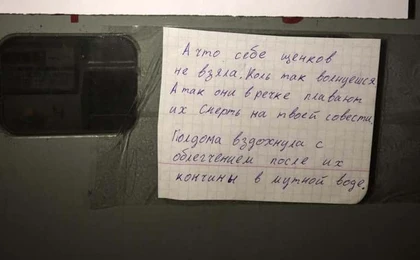 А что себе щенков
не взяла. Коль так волнуешся
А так они в речке плавают
их смерть на твоей совести
Полдома вздохнула с
облегчением после их
кончины в мутной воде.